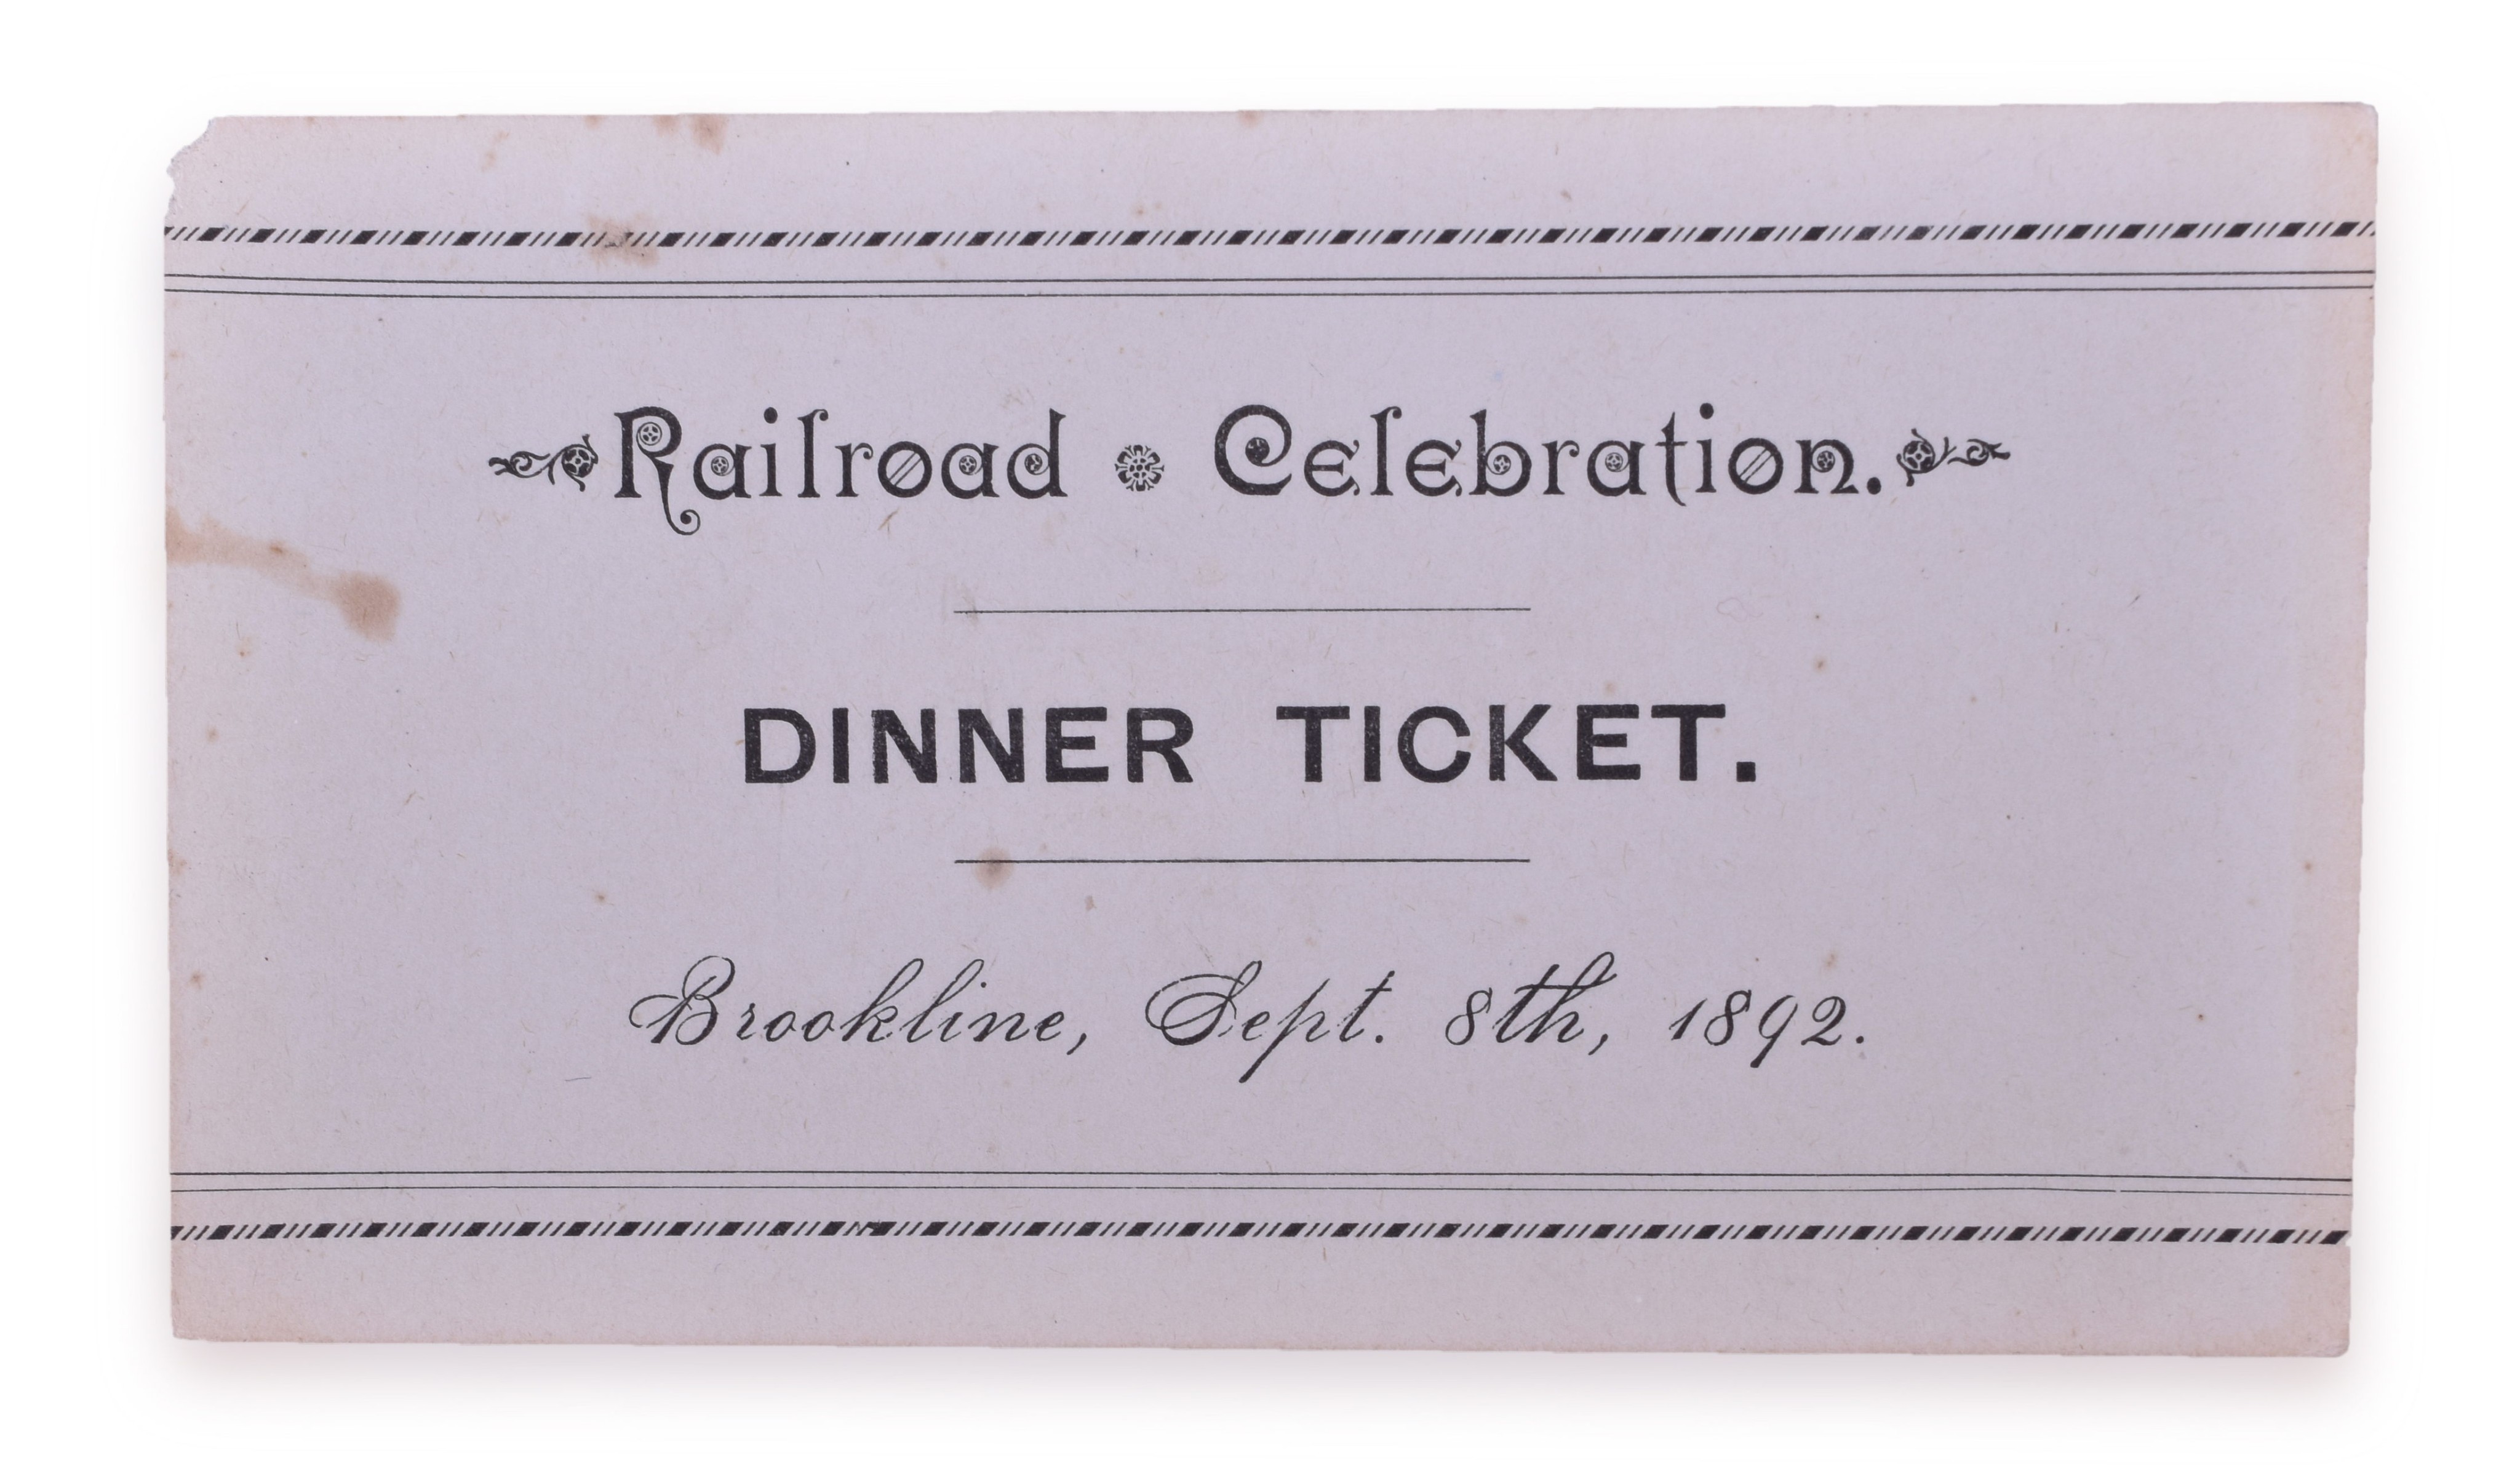 Railroad Celebration.
DINNER TICKET.
Brookline, Sept. 8th, 1892.